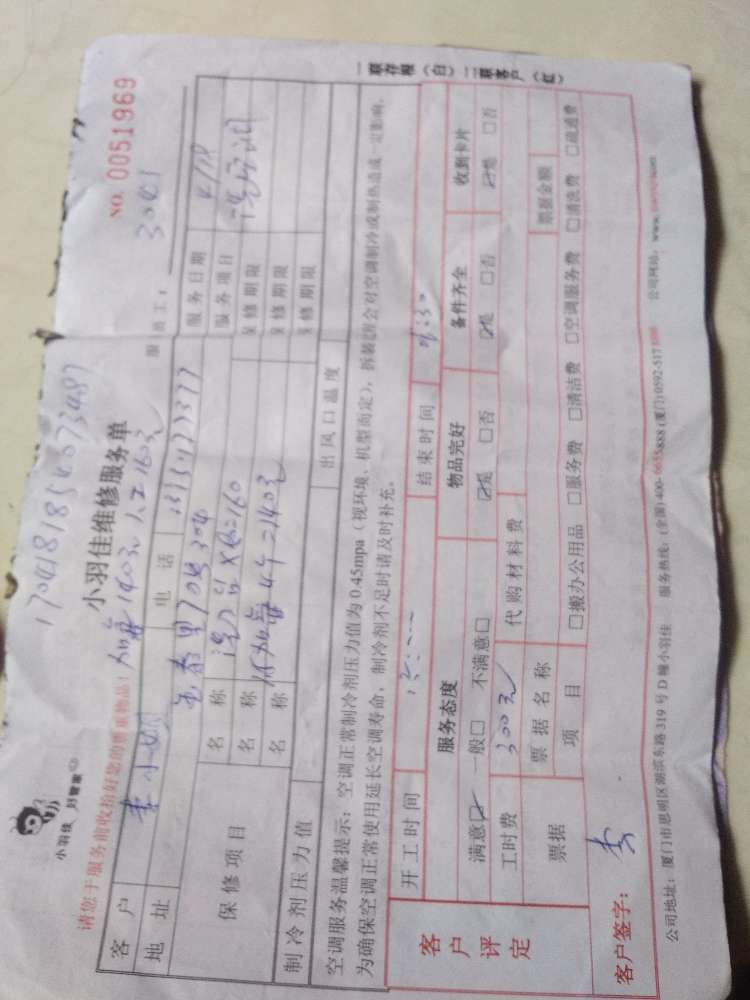 小羽佳 好管家
一联存根（白）二联客户（红）
1704181854073487
NO. 0051969
小羽佳维修服务单
请您于服务前收拾好您的贵重物品！
140元 人工160元
服 员工： 3041
客 户 李小姐 电 话 服务日期 4/18
地 址 里70号304 服务项目 洗空调
保 修 项 目
名 称 洗 160 保修期限
名 称 =140元 保修期限
名 称 保修期限
制冷剂压力值 出风口温度
空调服务温馨提示：空调正常制冷剂压力值为0.45mpa（视环境、机型而定），拆装 会对空调制冷或制热造成一定影响，
为确保空调正常使用延长空调寿命，制冷剂不足时请及时补充。
客户评定
开工时间 结束时间 :30
服务态度 物品完好 备件齐全 收到卡片
满意☑ 一般□ 不满意□ ☑是 □否 ☑是 □否 ☑是 □否
工时费 300元 代购材料费
票据 票据名称 票据金额
项 目 □搬办公用品 □服务费 □清洁费 □空调服务费 □清洗费 □疏通费
客户签字： 李
公司地址：厦门市思明区湖滨东路319号D幢小羽佳 服务热线：(全国)400-6655888 (厦门)0592-517 公司网站：www.